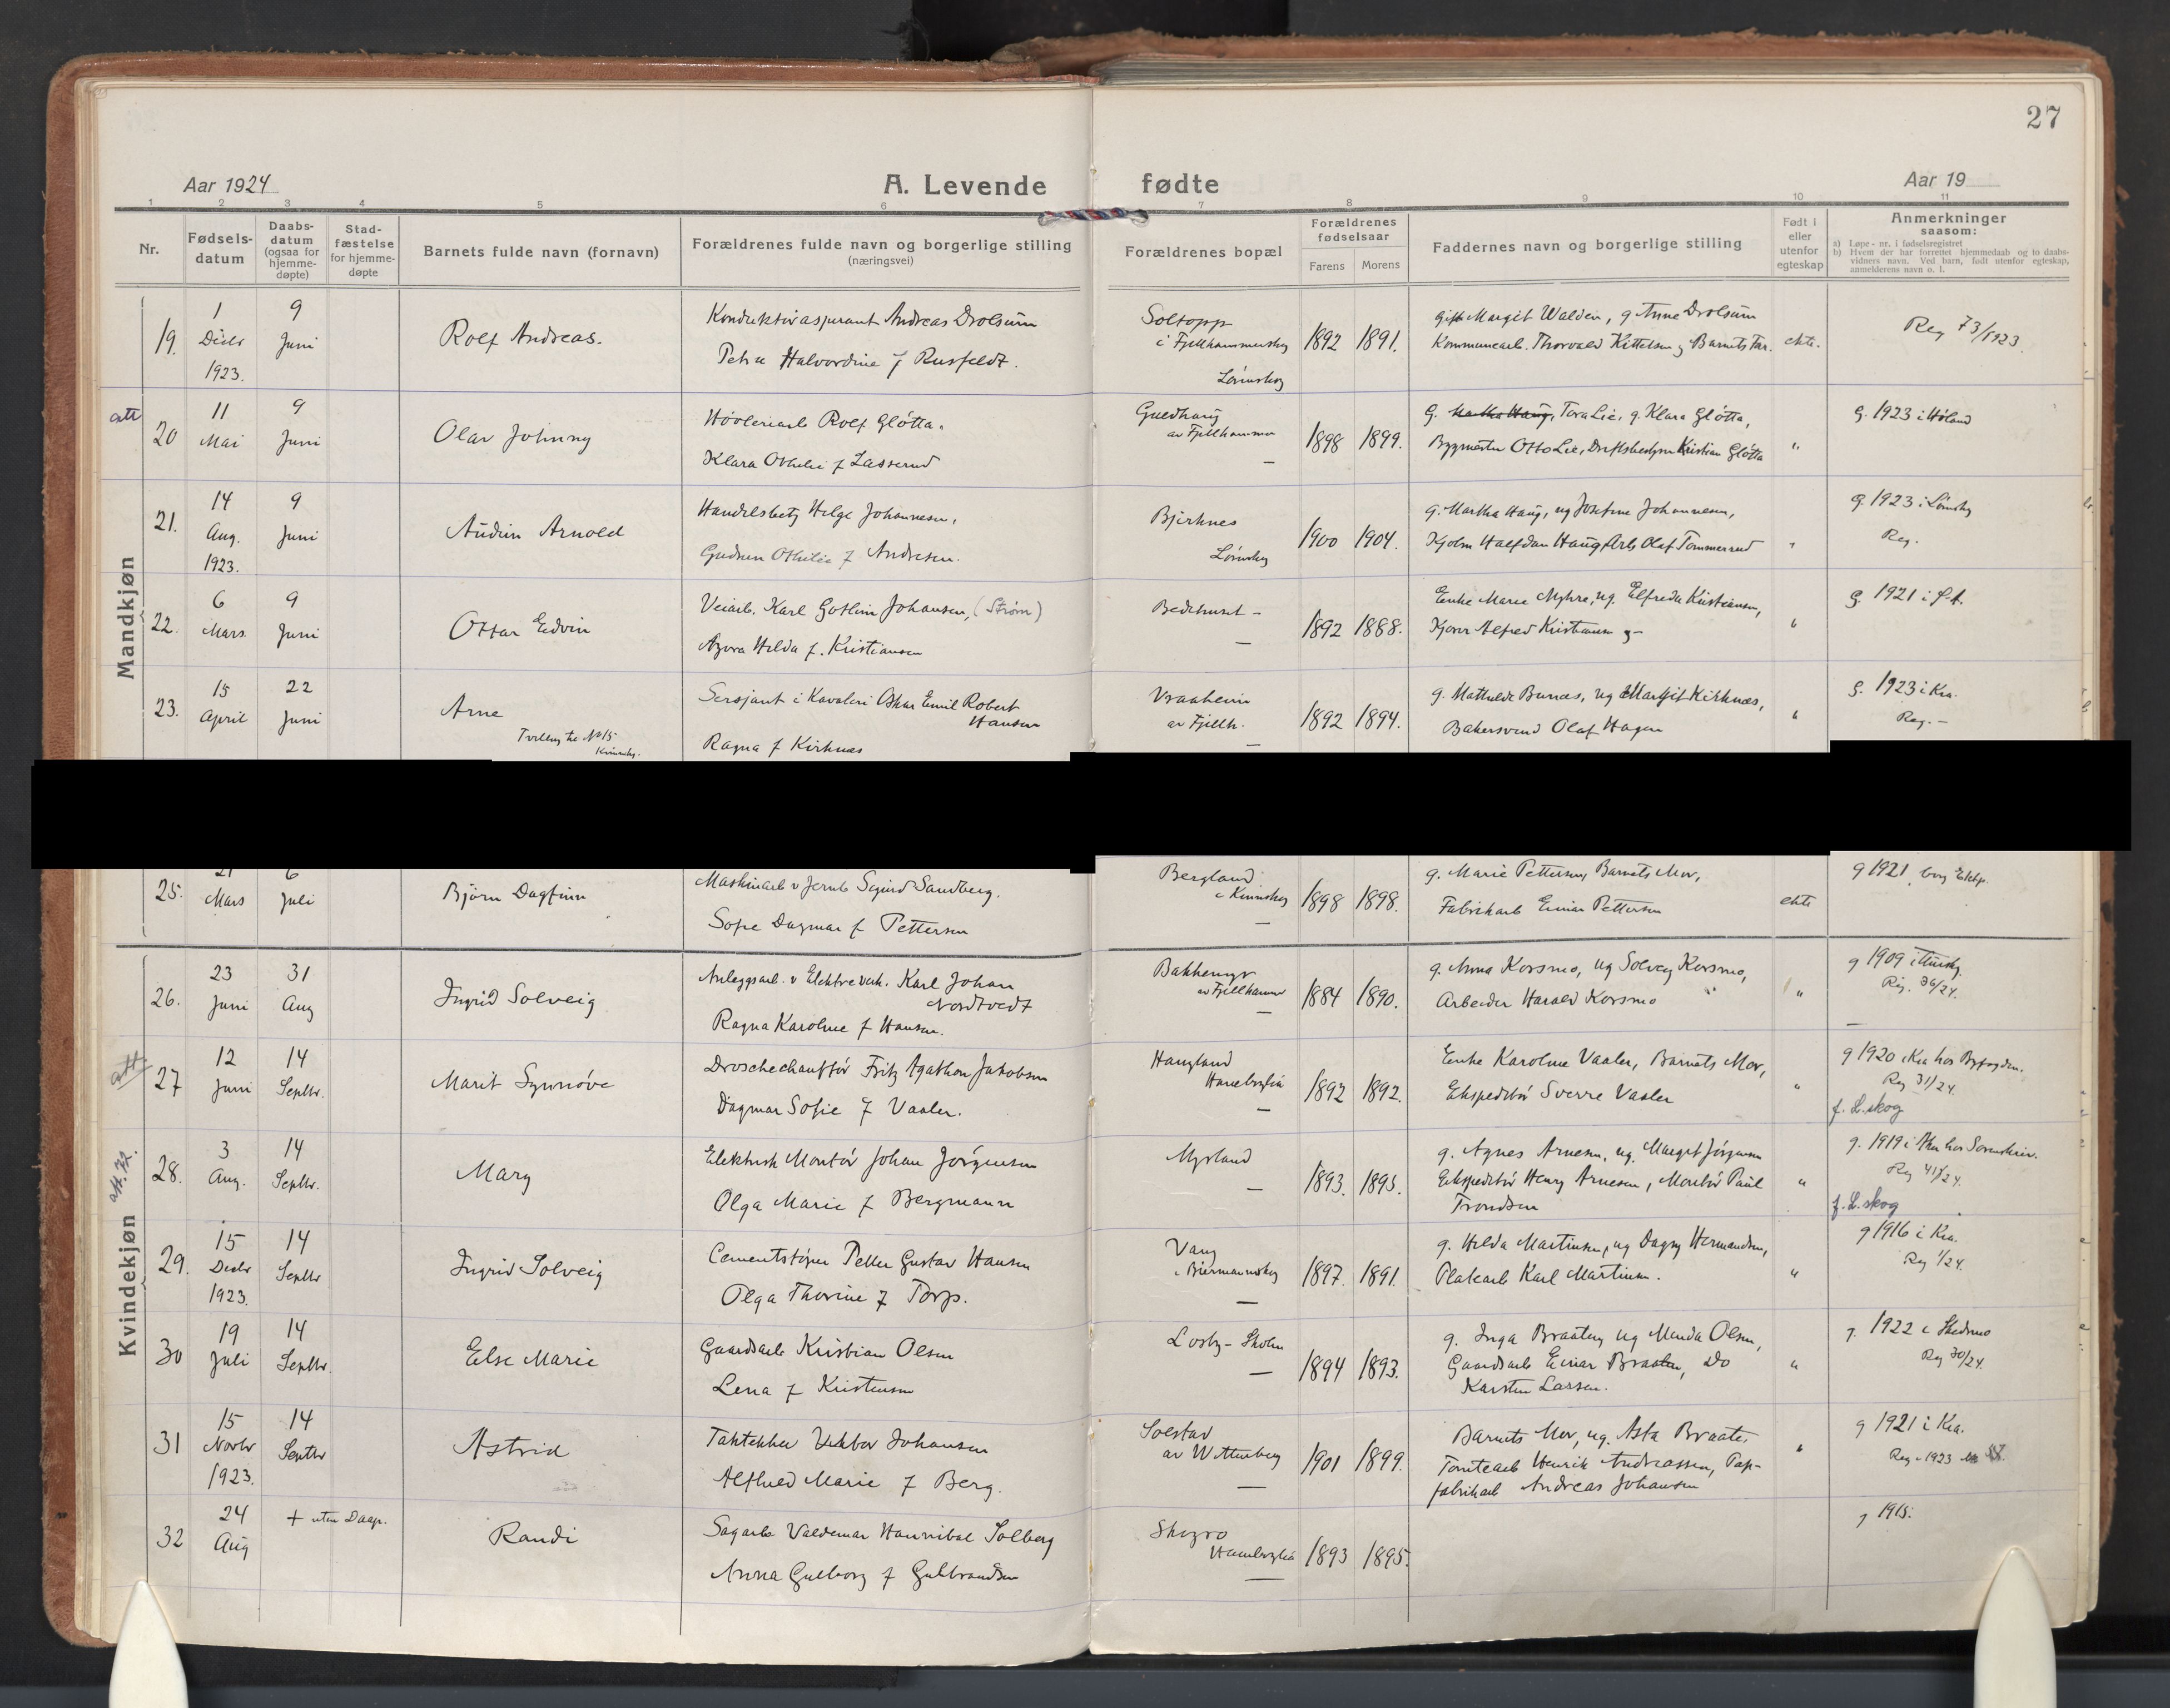 27
Aar 1924
A. Levende
fødte
Aar 19
1 2 3 4 5 6 7 8 9 10 11
Nr.
Fødsels-
datum
Daabs-
datum
(ogsaa for
hjemme-
døpte)
Stad-
fæstelse
for hjemme-
døpte
Barnets fulde navn (fornavn)
Forældrenes fulde navn og borgerlige stilling
(næringsvei)
Forældrenes bopæl
Forældrenes
fødselsaar
Farens Morens
Faddernes navn og borgerlige stilling
Født i
eller
utenfor
egteskap
Anmerkninger
saasom:
a) Løpe-nr. i fødselsregistret
b) Hvem der har forrettet hjemmedaab og to daabs-
vidners navn. Ved barn, født utenfor egteskap,
anmelderens navn o. l.
Mandkjøn
19.
1
Decbr
1923.
9
Juni
Rolf Andreas.
Konduktøraspirant Andreas Drolsum
Petra Halvordine f Rusfeldt.
Soltopp
i Fjellhammerskog
Lørenskog
1892 1891.
gift Margit Walden, g Anne Drolsum
Kommunearb. Thorvald Kittelsen og Barnets Far.
ekte.
Reg 73/1923
att
20
11
Mai
9
Juni
Olav Johnny
Høvleriarb Rolf Gløtta.
Klara Othilie f Lasserud
av Fjellhammer
1898 1899.
g. Martha Haug, Tora Lie, g. Klara Gløtta,
Bygmester Otto Lie, Driftsbestyrer Kristian Gløtta
"
g. 1923 i Høland
21.
14
Aug.
1923.
9
Juni
Audun Arnold
Handelsbetj Helge Johannesen,
Gudrun Othilie f Andresen.
Bjerknes
Lørenskog
1900 1904.
g. Martha Haug, ug Josefine Johannesen,
Halfdan Haug, Arb Olaf Tommerud
"
g. 1923 i Lørenskog
Reg.
22.
6
Mars
9
Juni
Ottar Edvin
Veiarb. Karl Gotlim Johansen, (Strøm)
Hilda f. Kristiansen
Bedehuset -
1892 1888.
Enke Marie Myhre, ug. Elfreda Kristiansen,
Alfred Kristiansen
"
g. 1921 i
23.
15
April
22
Juni
Arne
Tvilling til No 15
Kvindekj.
Sersjant i Kavaleri Oskar Emil Robert
Hansen
Ragna f Kirknes
Vraaheim
av Fjellh.
1892 1894.
g. Mathilde Bunæs, ug Margit Kirknes,
Bakersvend Olaf Hagen
"
g. 1923 i Kra.
Reg. -
25.
21
Mars
6
Juli
Bjørn Dagfinn
Maskinarb v Jernb Sigurd Sandberg.
Sofie Dagmar f Pettersen
Bergland
1898 1898.
g. Marie Pettersen, Barnets Mor,
Fabrikarb Einar Pettersen
ekte
g 1921 borg Ektsk.
Kvindekjøn
26.
23
Juni
31
Aug
Ingrid Solveig
Anleggsarb. v Elektr verk. Karl Johan
Nordtvedt
Ragna Karoline f Hansen.
Bakkemyr
av Fjellhammer
1884 1890.
g. Anna Korsmo, ug Solveig Korsmo,
Arbeider Harald Korsmo
"
g 1909 i
Reg. 36/24.
att.
27
12
Juni
14
Septbr.
Marit Synnøve
Droschechauffør Fritz Agathon Jakobsen
Dagmar Sofie f Vaaler.
Haugland
Haneborglia
1892 1892.
Enke Karoline Vaaler, Barnets Mor,
Ekspeditør Sverre Vaaler
"
g 1920 i Kra hos Byfogden.
Reg 31/24.
f. L.skog
28.
3
Aug.
14
Septbr.
Mary
Elektrisk Montør Johan Jørgensen
Olga Marie f Bergmann
Myrland
1893. 1895.
g. Agnes Arnesen, ug. Margit Jørgensen
Ekspeditør Henry Arnesen, Montør Paul
Trondsen
"
g. 1919 i Aker hos Sorenskriv.
Reg 41/24.
f. L.skog
29.
15
Decbr
1923.
14
Septbr
Ingrid Solveig
Cementstøper Petter Gustav Hansen
Olga Thorine f Torp.
Vang
i Biermannskog
1897. 1891.
g. Hilda Martinsen, ug Dagny Hermandsen,
Platearb Karl Martinsen.
"
g 1916 i Kra.
Reg 1/24.
30
19
Juli
14
Septbr.
Else Marie
Gaardsarb Kristian Olsen
Lena f Kristensen
Losby - Skolen
1894 1893.
g. Inga Braaten, ug Menda Olsen,
Gaardsarb Einar Braaten, Do
Karsten Larsen.
"
g. 1922 i Skedsmo
Reg 30/24.
31
15
Novbr
1923.
14
Septbr
Astrid
Taktekker Viktor Johansen
Alfhild Marie f Berg.
Solstad
av Wittenberg
1901 1899.
Barnets Mor, ug. Asta Braate,
Tomtearb Henrik Andreassen, Pap-
fabrikarb Andreas Johansen
"
g 1921 i Kra.
Reg. 1923
32
24
Aug
+ uten Daap.
Randi
Sagarb Valdemar Hannibal Solberg
Anna Gulborg f Gulbrandsen
Skogro
Haneborglia
1893 1895.
g 1915.